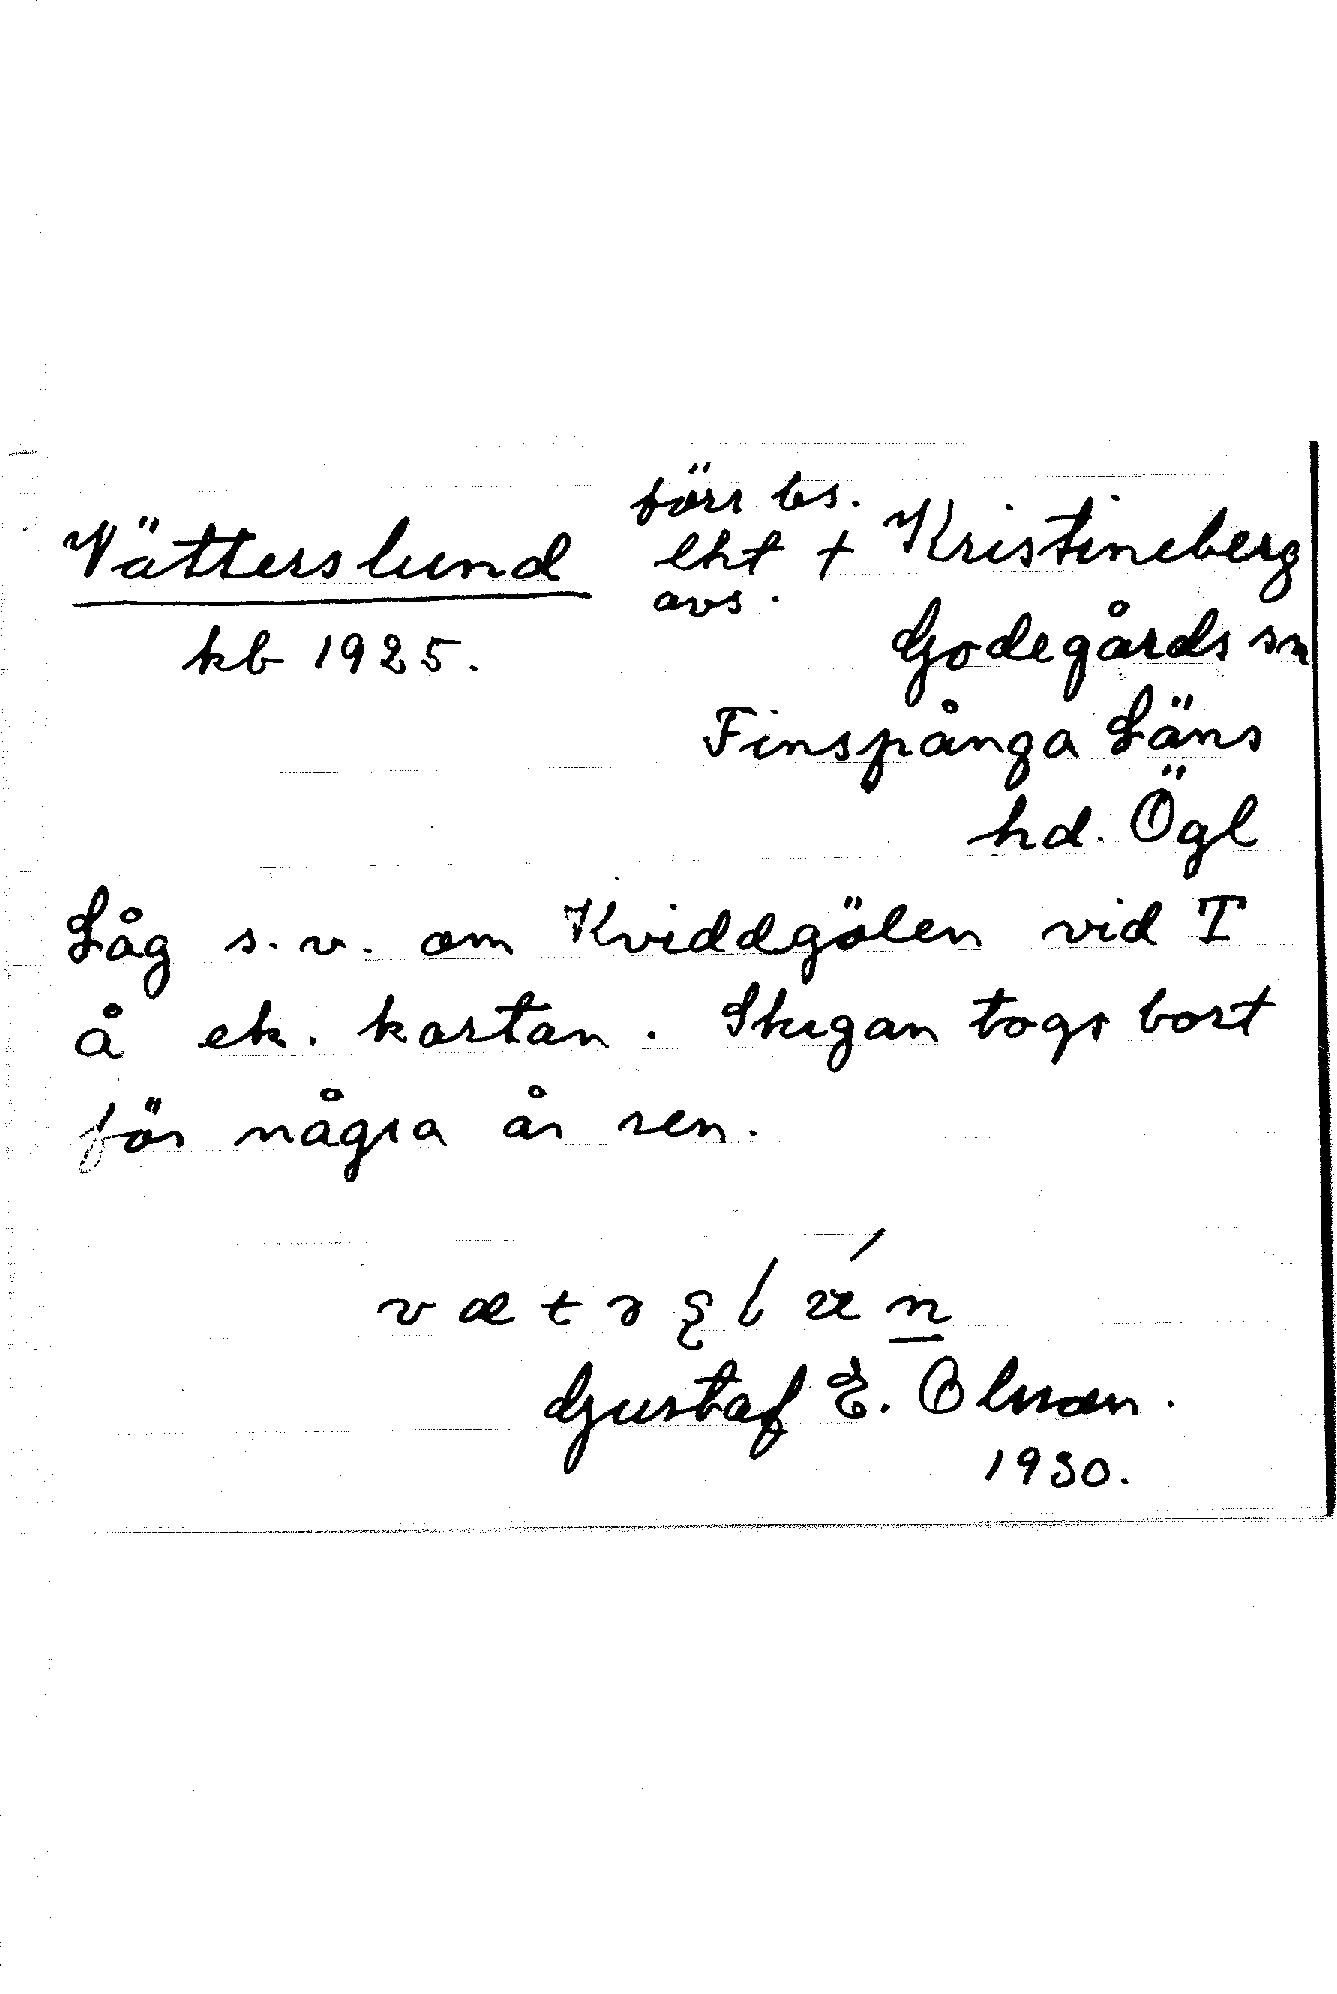 Vätterslund
kb 1925.
förr bs.
lht + Kristineberg
avs.
Godegårds sn
Finspånga Läns
hd. Ögl
Låg s.v. om Kviddgölen vid T
å ek. kartan. Stugan togs bort
för några år sen.
Gustaf E. Olsson.
1930.